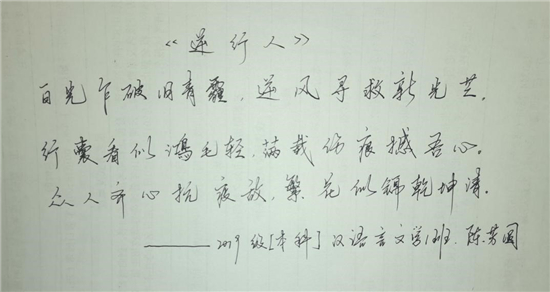 《逆行人》
日光乍破旧青霾，逆风寻救新光芒。
行囊看似鸿毛轻，满载伤痕撼吾心。
众人齐心抗疫敌，繁花似锦乾坤清。
——2019级[本科]汉语言文学1班 陈芳圆